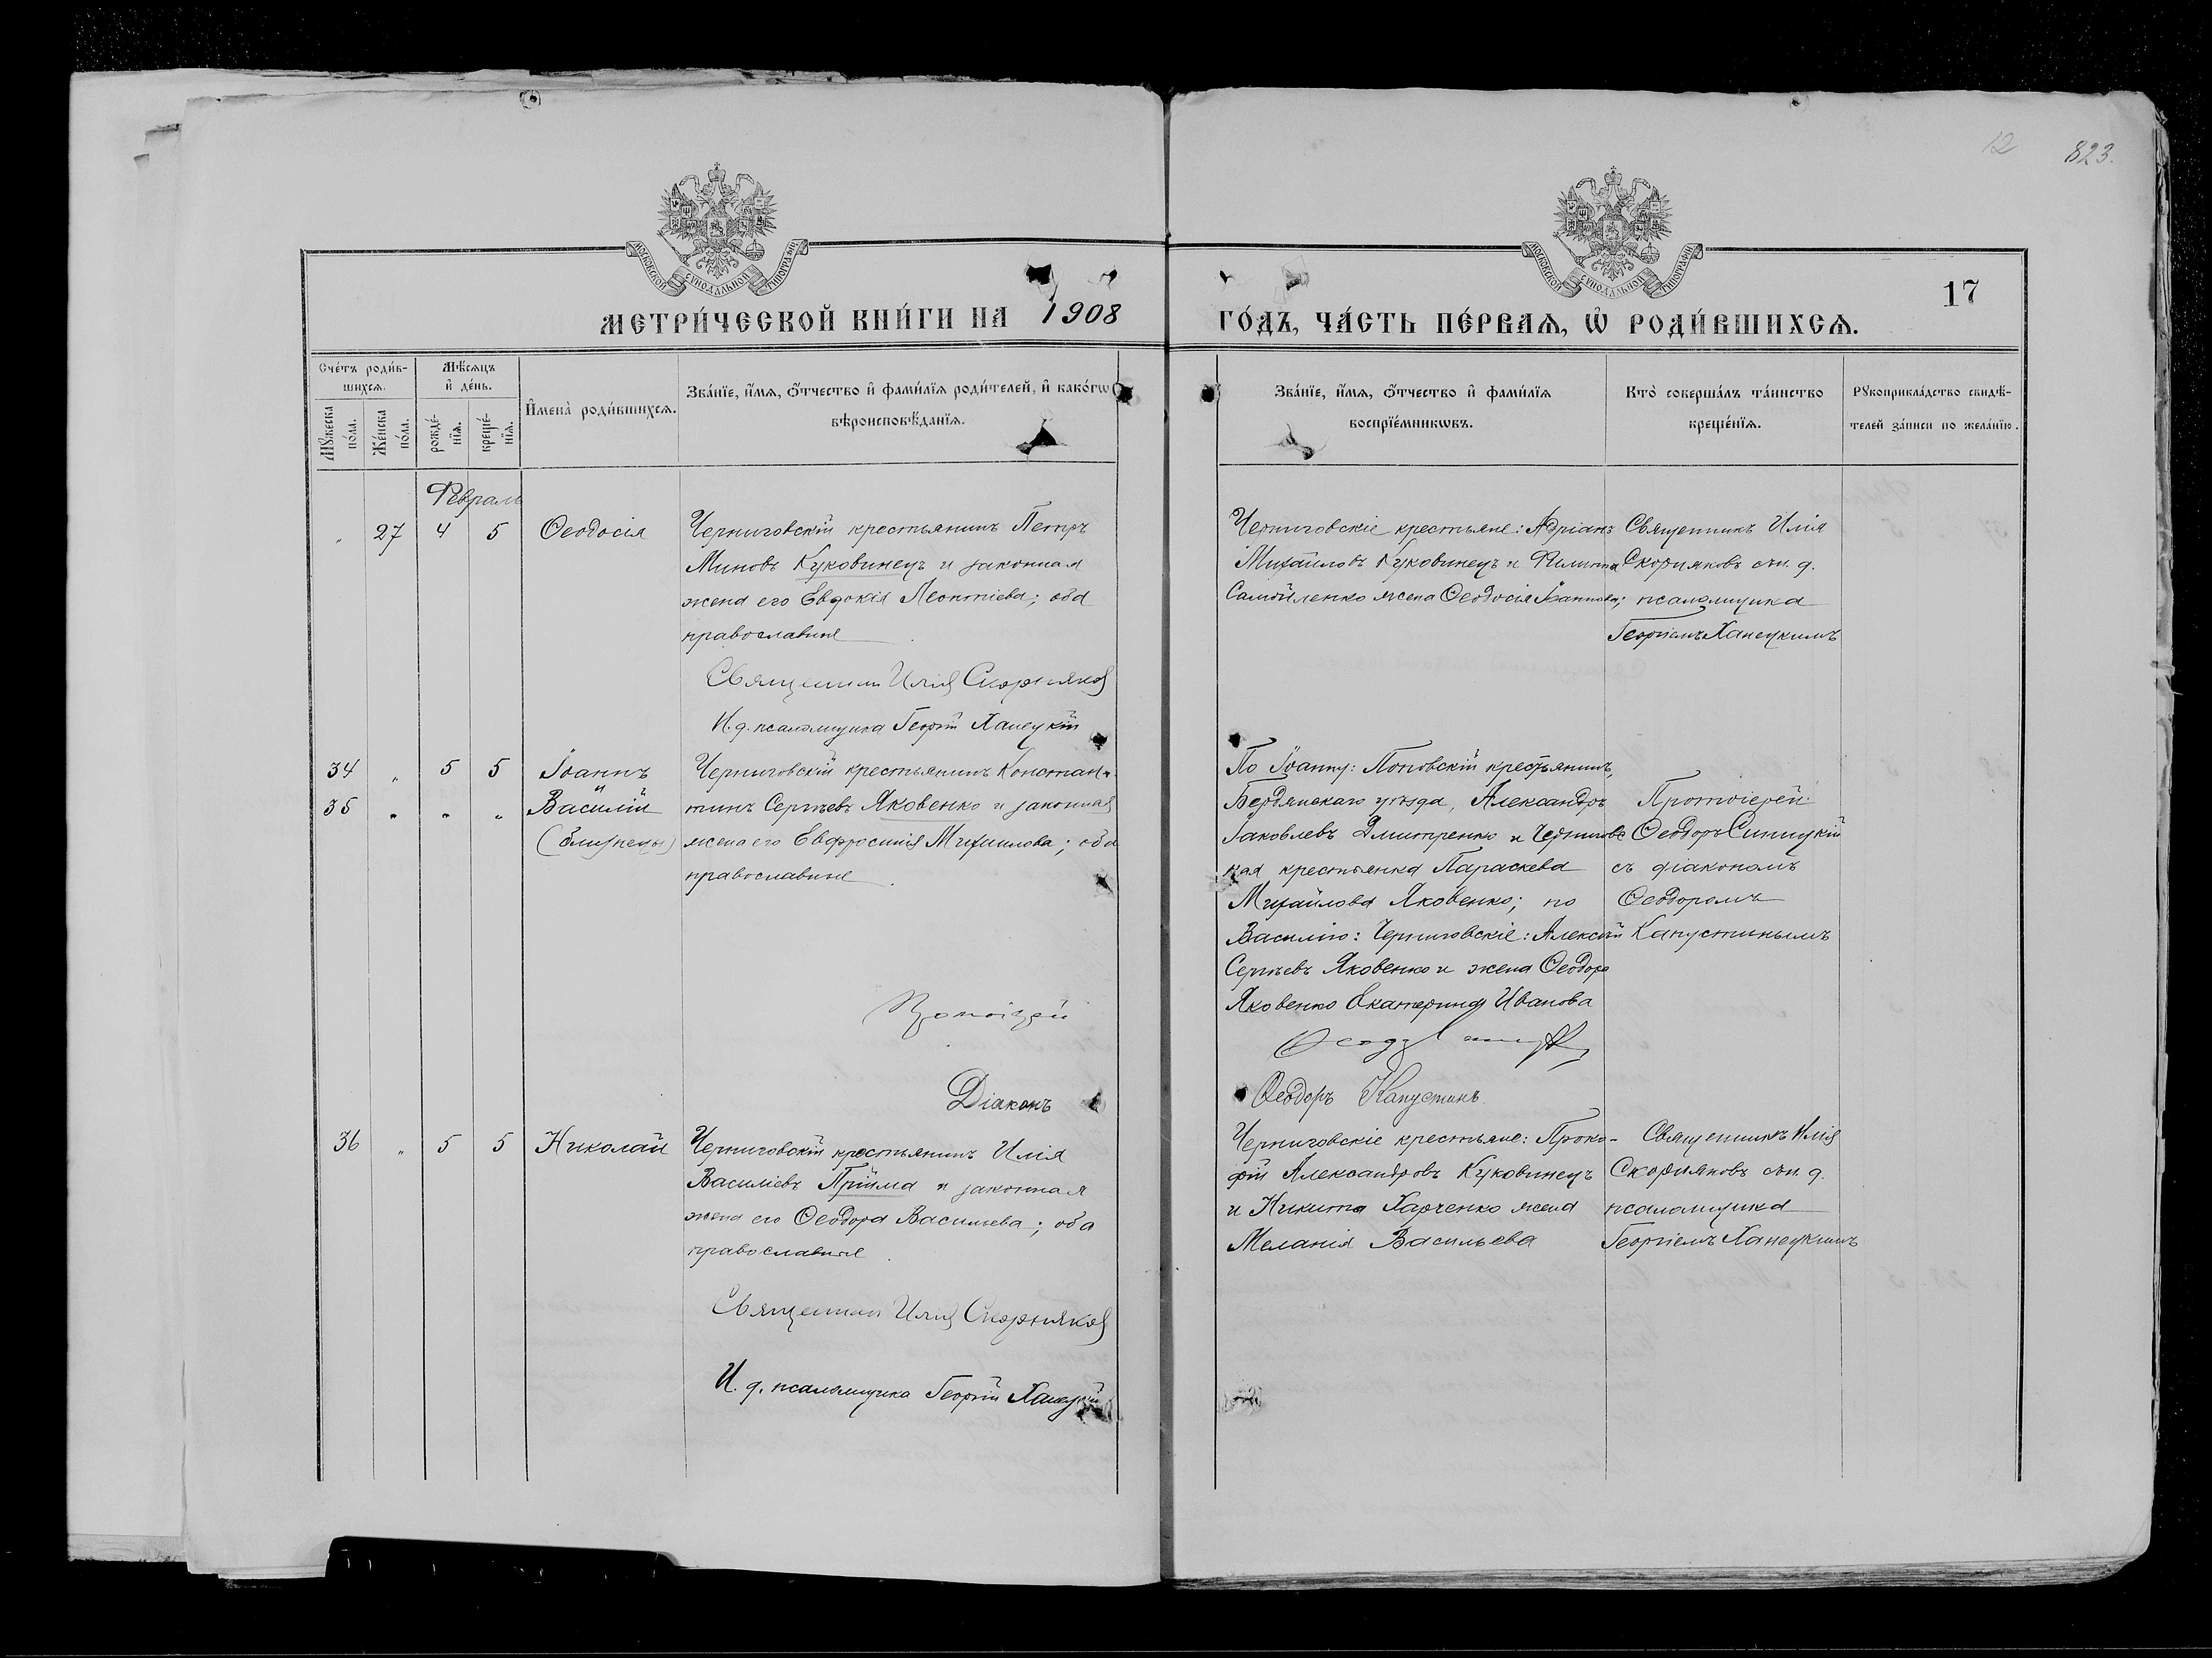 12 823.
МОСКОВСКОЙ СѴНОДАЛЬНОЙ ТИПОГРАФІИ
МОСКОВСКОЙ СѴНОДАЛЬНОЙ ТИПОГРАФІИ
17
МЕТРИ́ЧЕСКОЙ КНИ́ГИ НА 1908 ГО́ДЪ, ЧА́СТЬ ПЕ́РВАЯ, Ѡ҆ РОДИ́ВШИХСЯ.
Сче́тъ роди́в-
шихся.
Мꙋ́жеска по́ла.
Же́нска по́ла.
Мѣ́сяцъ
и҆ де́нь.
рожде́-
нїя.
креще́-
нїя.
И҆мена̀ роди́вшихся.
Зва́нїе, и҆́мя, ѻ҆́тчество и҆ фами́лїя роди́телей, и҆ како́гѡ
вѣроисповѣ́данїя.
Зва́нїе, и҆́мя, ѻ҆́тчество и҆ фами́лїя
воспрїе́мникѡвъ.
Кто̀ соверша́лъ та́инство
креще́нїя.
Рꙋкоприкла́дство свидѣ́-
телей за́писи по жела́нїю.
Февраль
„ 27 4 5 Ѳеодосія
Черниговскій крестьянинъ Петръ
Миновъ Куковинецъ и законная
жена его Евдокія Леонтіева; оба
православные
Священник Илія Скорняков
И. д. псаломщика Георгій Ханецкій
Черниговскіе крестьяне: Адріанъ
Михайловъ Куковинецъ и Филиппа
Самойленко жена Ѳеодосія Іоаннова;
Священникъ Илія
Скорняковъ съ и. д.
псаломщика
Георгіемъ Ханецкимъ
34 „ 5 5 Іоаннъ
35 „ „ „ Василій
(близнецы)
Черниговскій крестьянинъ Констан-
тинъ Сергѣевъ Яковенко и законная
жена его Евфросинія Михаилова; оба
православные
Протоіерей
Діаконъ
По Іоанну: Поповскій крестьянинъ,
Бердянскаго уѣзда, Александръ
Іаковлевъ Дмитренко и Черниговс
кая крестьянка Параскева
Михайлова Яковенко; по
Василію: Черниговскіе: Алексѣй
Сергѣевъ Яковенко и жена Ѳеодора
Яковенко Екатерина Иванова
Ѳеодоръ Капустинъ
Протоіерей
Ѳеодоръ Синицкій
съ діакономъ
Ѳеодоромъ
Капустинымъ
36 „ 5 5 Николай
Черниговскій крестьянинъ Илія
Василіевъ Прійма и законная
жена его Ѳеодора Васильева; оба
православные
Священник Илія Скорняков
И. д. псаломщика Георгій Ханецкій
Черниговскіе крестьяне: Проко-
фій Александровъ Куковинецъ
и Никита Харченко жена
Меланія Васильева
Священникъ Илія
Скорняковъ съ и. д.
псаломщика
Георгіемъ Ханецкимъ